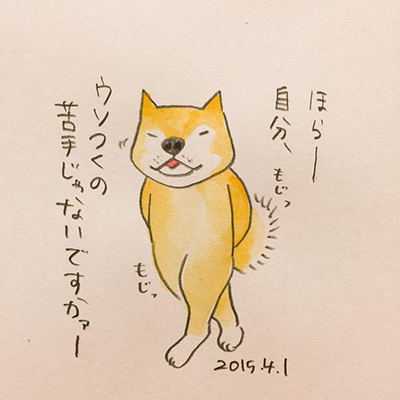 ほらー
自分、
もじっ
ウソつくの
苦手じゃないですかァー
もじっ
2015.4.1